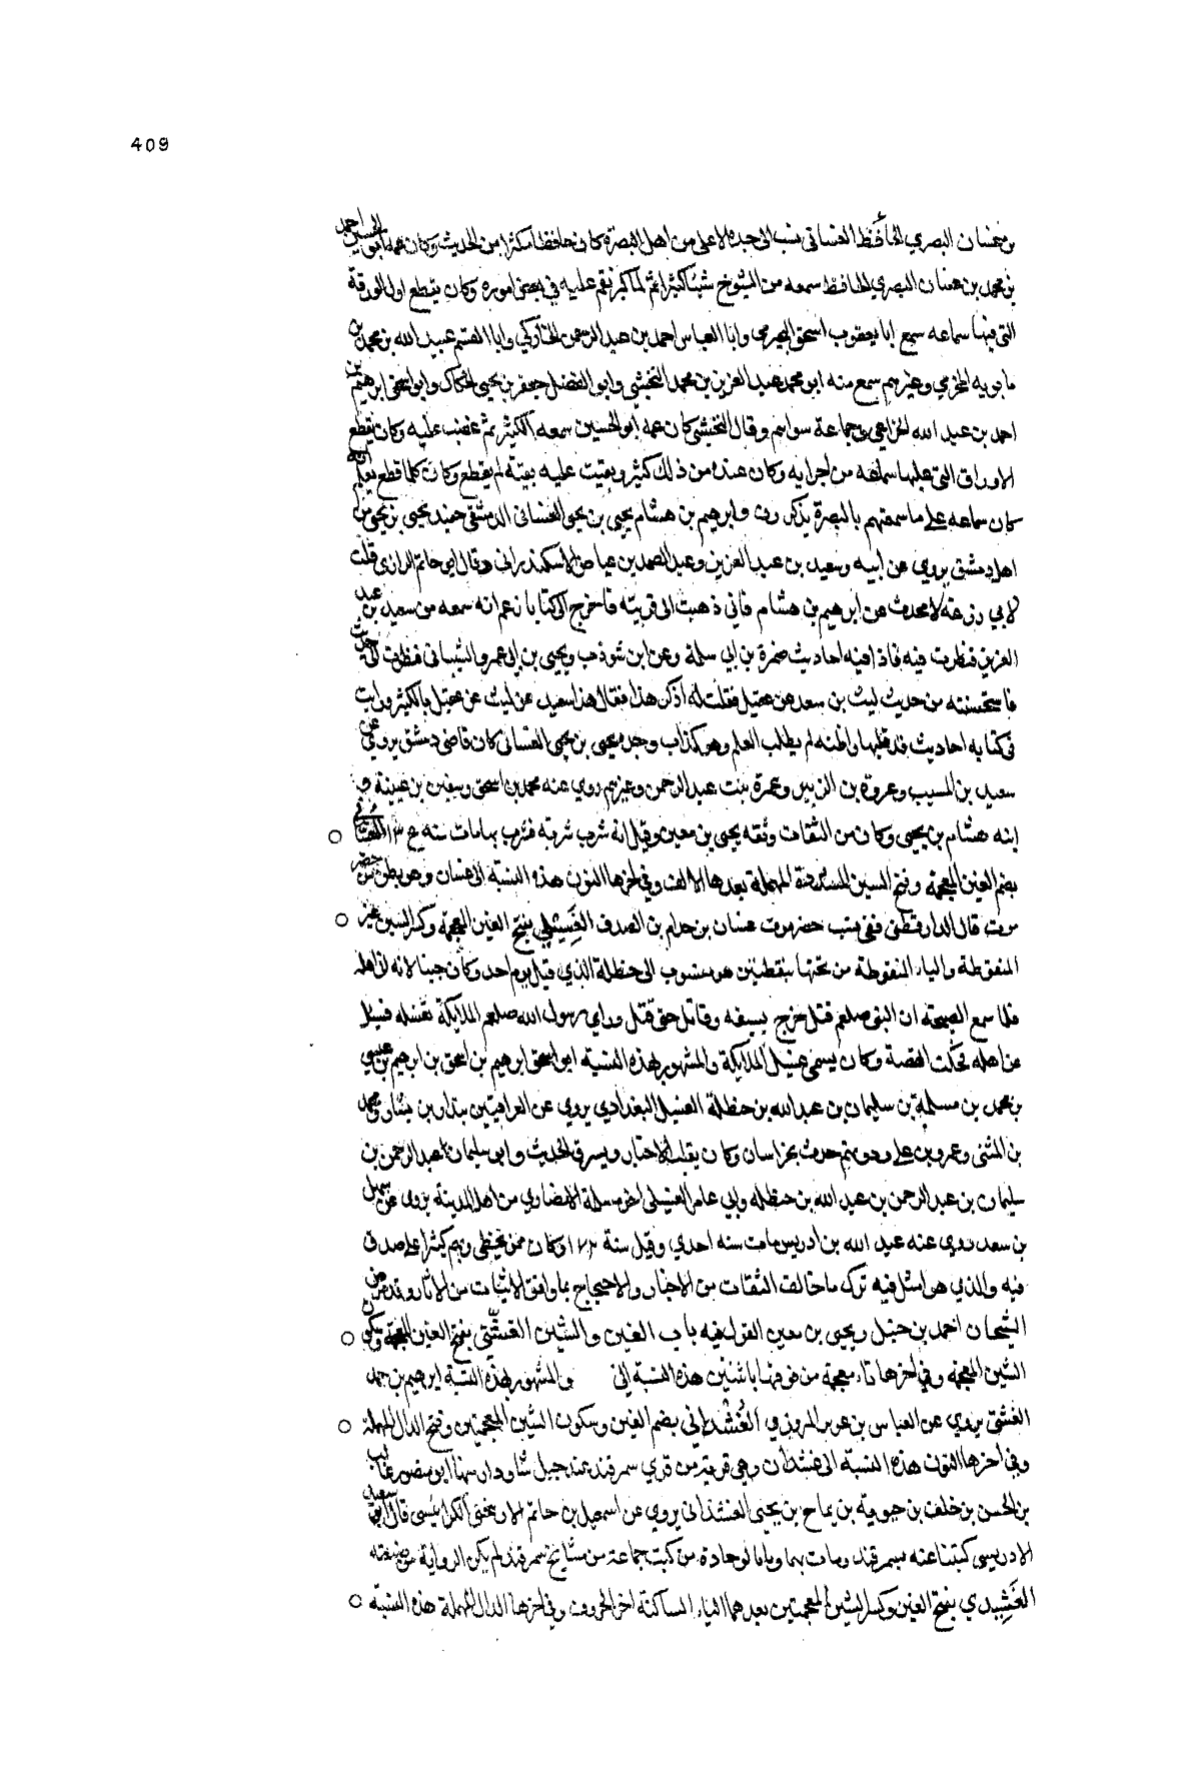 409
بن غسان البصري الحافظ الغساني نسب الى جده الاعلى من اهل البصرة كان حافظا مكثرا من الحديث وكان عمه ابو الحسين احمد
بن محمد بن غسان البصري الحافظ سمعه من الشيوخ شيئا كثيرا ثم لما كبر نقم عليه في بعض اموره وكان يقطع اول الورقة
التي فيها سماعه سمع ابا يعقوب اسحق النجيرمي وابا العباس احمد بن عبد الرحمن الخاركي وابا القسم عبيد الله بن محمد بن
بابويه المخرمي وغيرهم سمع منه ابو محمد عبد العزيز بن محمد النخشبي وابو الفضل جعفر بن يحيى الحكاك وابو اسحق ابرهيم بن
احمد بن عبد الله الخزاعي في جماعة سواهم وقال النخشبي كان عمه ابو الحسين سمعه الكثير ثم غضب عليه وكان يقطع
الاوراق التي عليها سماعه من اجزايه وكان عنده من ذلك كثير وبقيت عليه بقية لم يقطع وكان كلما قطع يعلم انه
كان سماعه على ما سمعتهم بالبصرة يذكرون وابرهيم بن هشام بن يحيى بن يحيى الغساني الدمشقي حفيد يحيى بن يحيى من
اهل دمشق يروي عن ابيه وسعيد بن عبد العزيز وعبد الصمد بن عياض الاسكندراني وقال ابن ابي حاتم الرازي قلت
لابي زرعة لا تحدث عن ابرهيم بن هشام فاني ذهبت الى قريته فاخرج الي كتابا زعم انه سمعه من سعيد بن عبد
العزيز فنظرت فيه فاذا فيه احاديث ضمرة بن ابي سلمة وعن ابن شوذب ويحيى بن ابي عمرو الشيباني فنظرت الى حديث
فاستحسنته من حديث ليث بن سعد عن عقيل فقلت له اذكر هذا فقال هذا سعيد عن ليث عن عقيل بالكثير ورايت
في كتابه احاديث قد قلبها واظنه لم يطلب العلم وهو كذاب وجده يحيى بن يحيى الغساني كان قاضي دمشق يروي عن
سعيد بن المسيب وعروة بن الزبير وعمرة بنت عبد الرحمن وغيرهم روي عنه محمد بن اسحق وسفين بن عيينة و
ابنه هشام بن يحيى وكان من الثقات وثقه يحيى بن معين وقيل انه شرب شربة فشرق بها مات سنه الغساني
بضم الغين المعجمة وفتح السين المشددة المهملة بعدها الالف وفي اخرها النون هذه النسبة الى غسان وهو بطن من حضر
موت قال الدارقطني ففي نسب حضرموت غسان بن حذام بن الصدف الغسيلي بفتح الغين المعجمة وكسر السين غير
المنقوطة والياء المنقوطة من تحتها بنقطتين هو منسوب الى حنظلة الذي قتل يوم احد وكان جنبا لانه اتى اهله
فلما سمع الصيحة ان النبي صلعم قتل خرج بسيفه وقاتل حتى قتل وراي رسول الله صلعم الملايكة تغسله فسئل
عن اهله فحكت القصة وكان يسمى غسيل الملايكة والمشهور بهذه النسبة ابو اسحق ابرهيم بن اسحق بن ابرهيم بن عيسى
بن محمد بن مسلمة بن سليمان بن عبد الله بن حنظلة الغسيل البغدادي يروي عن العراقيين بندار بن بشار ومحمد
بن المثنى وعمرو بن علي وذويهم حدث بخراسان وكان يقلب الاخبار ويسرق الحديث وابو سليمان عبد الرحمن بن
سليمان بن عبد الرحمن بن عبد الله بن حنظله وابي عامر الغسيلي اخو مسلمة الانصاري من اهل المدينة يروي عن سهيل
بن سعد روي عنه عبد الله بن ادريس مات سنه احدي وقيل سنة ١٧٢ وكان ممن يخطي ويهم كثيرا على صدق
فيه والذي هو امثل فيه ترك ما خالف الثقات من الاخبار والاحتجاج بما وافق الاثبات من الاثار وقد مرض
الشيخان احمد بن حنبل ويحيى بن معين القول فيه باب الغين والشين الغشتي بفتح الغين المعجمة وسكون
الشين المعجمة وفي اخرها تاء معجمة من فوقها باثنتين هذه النسبة الى والمشهور بهذه النسبة ابرهيم بن حمد
الغشتي يروي عن العباس بن عوير المروزي الغشداني بضم الغين وسكون الشين المعجمتين وفتح الدال المهملة
وفي اخرها النون هذه النسبة الى غشدان وهي قرية من قري سمرقند عند جبل شاودار منها ابو منصور غالب
بن الحسن بن خلف بن حيويه بن يماح بن يحيى الغشداني يروي عن اسمعيل بن حاتم الاربنجني الكرابيسي قال ابو سعيد
الادريسي كتبنا عنه بسمرقند ومات بها وبابا لوجادة من كتب جماعة من مشايخ سمرقند لم يكن الرواية من صنيعته
الغشيدي بفتح الغين وكسر الشين المعجمتين بعدهما الياء الساكنة اخر الحروف وفي اخرها الدال المهملة هذه النسبة